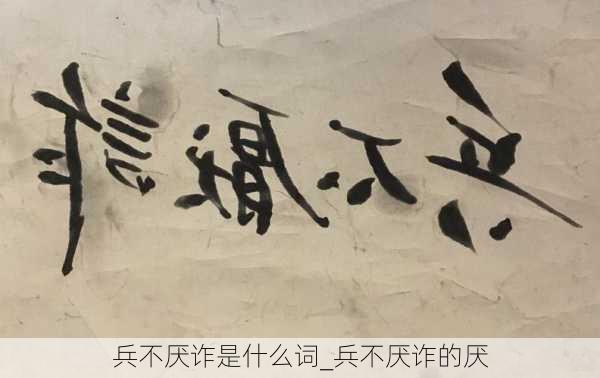 兵不厭詐
兵不厌诈是什么词_兵不厌诈的厌